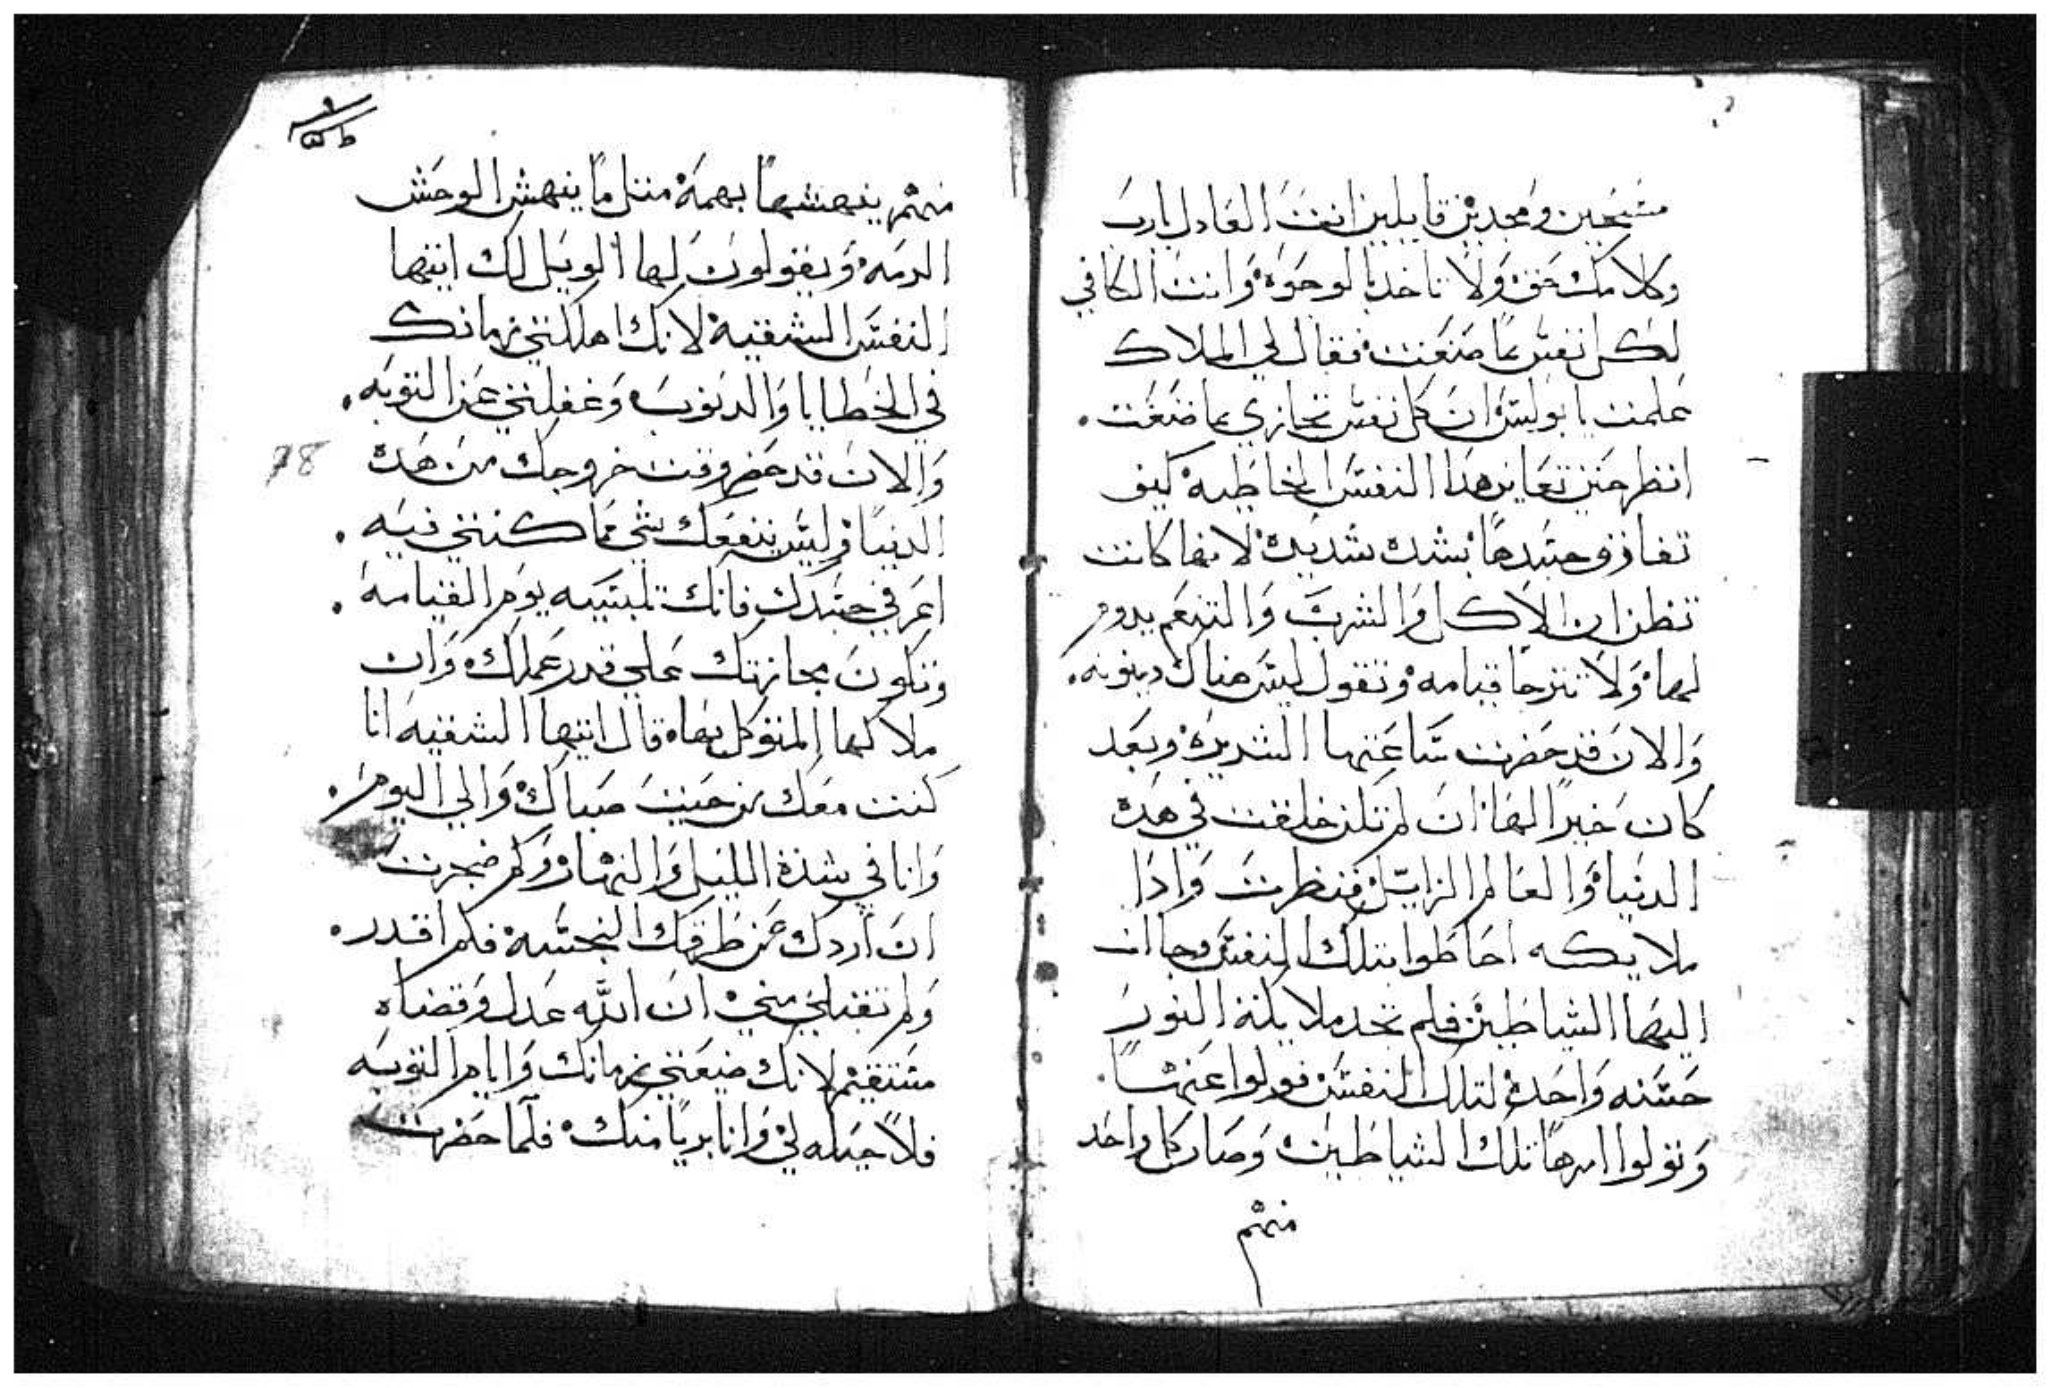 مسبحين وممجدين قايلين انت العادل يارب
وكلامك حق ولا تاخد بالوجوه وانت المكافي
لكل نفس بما صنعت فقال لي الملاك
علمت يا بولس ان كل نفس تجازي بما صنعت.
انظر حين تعاين هدا النفس الخاطيه كيف
تفارق جسدها بشده شديده لانها كانت
تظن ان الاكل والشرب والتنعم يدوم
لها ولا تترجا قيامه وتقول ليس هناك دينونه.
والان قد حضرت ساعتها الشديده وبعد
كان خيرا لها ان لم تكن خلقت في هده
الدنيا والعالم الزايل فنظرت وادا
ملايكه احاطوا بتلك النفس وجاات
اليها الشياطين فلم تجد ملايكة النور
حسنه واحده لتلك النفس فولوا عنها.
وتولوا امرها تلك الشياطين وصار كل واحد
منهم
منهم ينهشها بهمه متل ما ينهش الوحش
الرمه ويقولون لها الويل لك ايتها
النفس الشقيه لانك اهلكتي زمانك
في الخطايا والدنوب وغفلتي عن التوبه.
والان قد حضر وقت خروجك من هده
الدنيا وليس ينفعك شي مما كنتي فيه.
اعرفي جسدك فانك تلبسيه يوم القيامه.
وتكون مجازتك علي قدر عملك وان
ملاكها المتوكل بها قال ايتها الشقيه انا
كنت معك من حيت صباك والي اليوم.
وانا في شدة الليل والنهار وكم ضجرت
ان اردك عن طرقك النجسه فلم اقدر.
ولم تقبلي مني ان الله عدل وقضاه
مستقيم لانك ضيعتي زمانك وايام التوبه
فلا حيله لي وانا بريا منك فلما حضرت
78